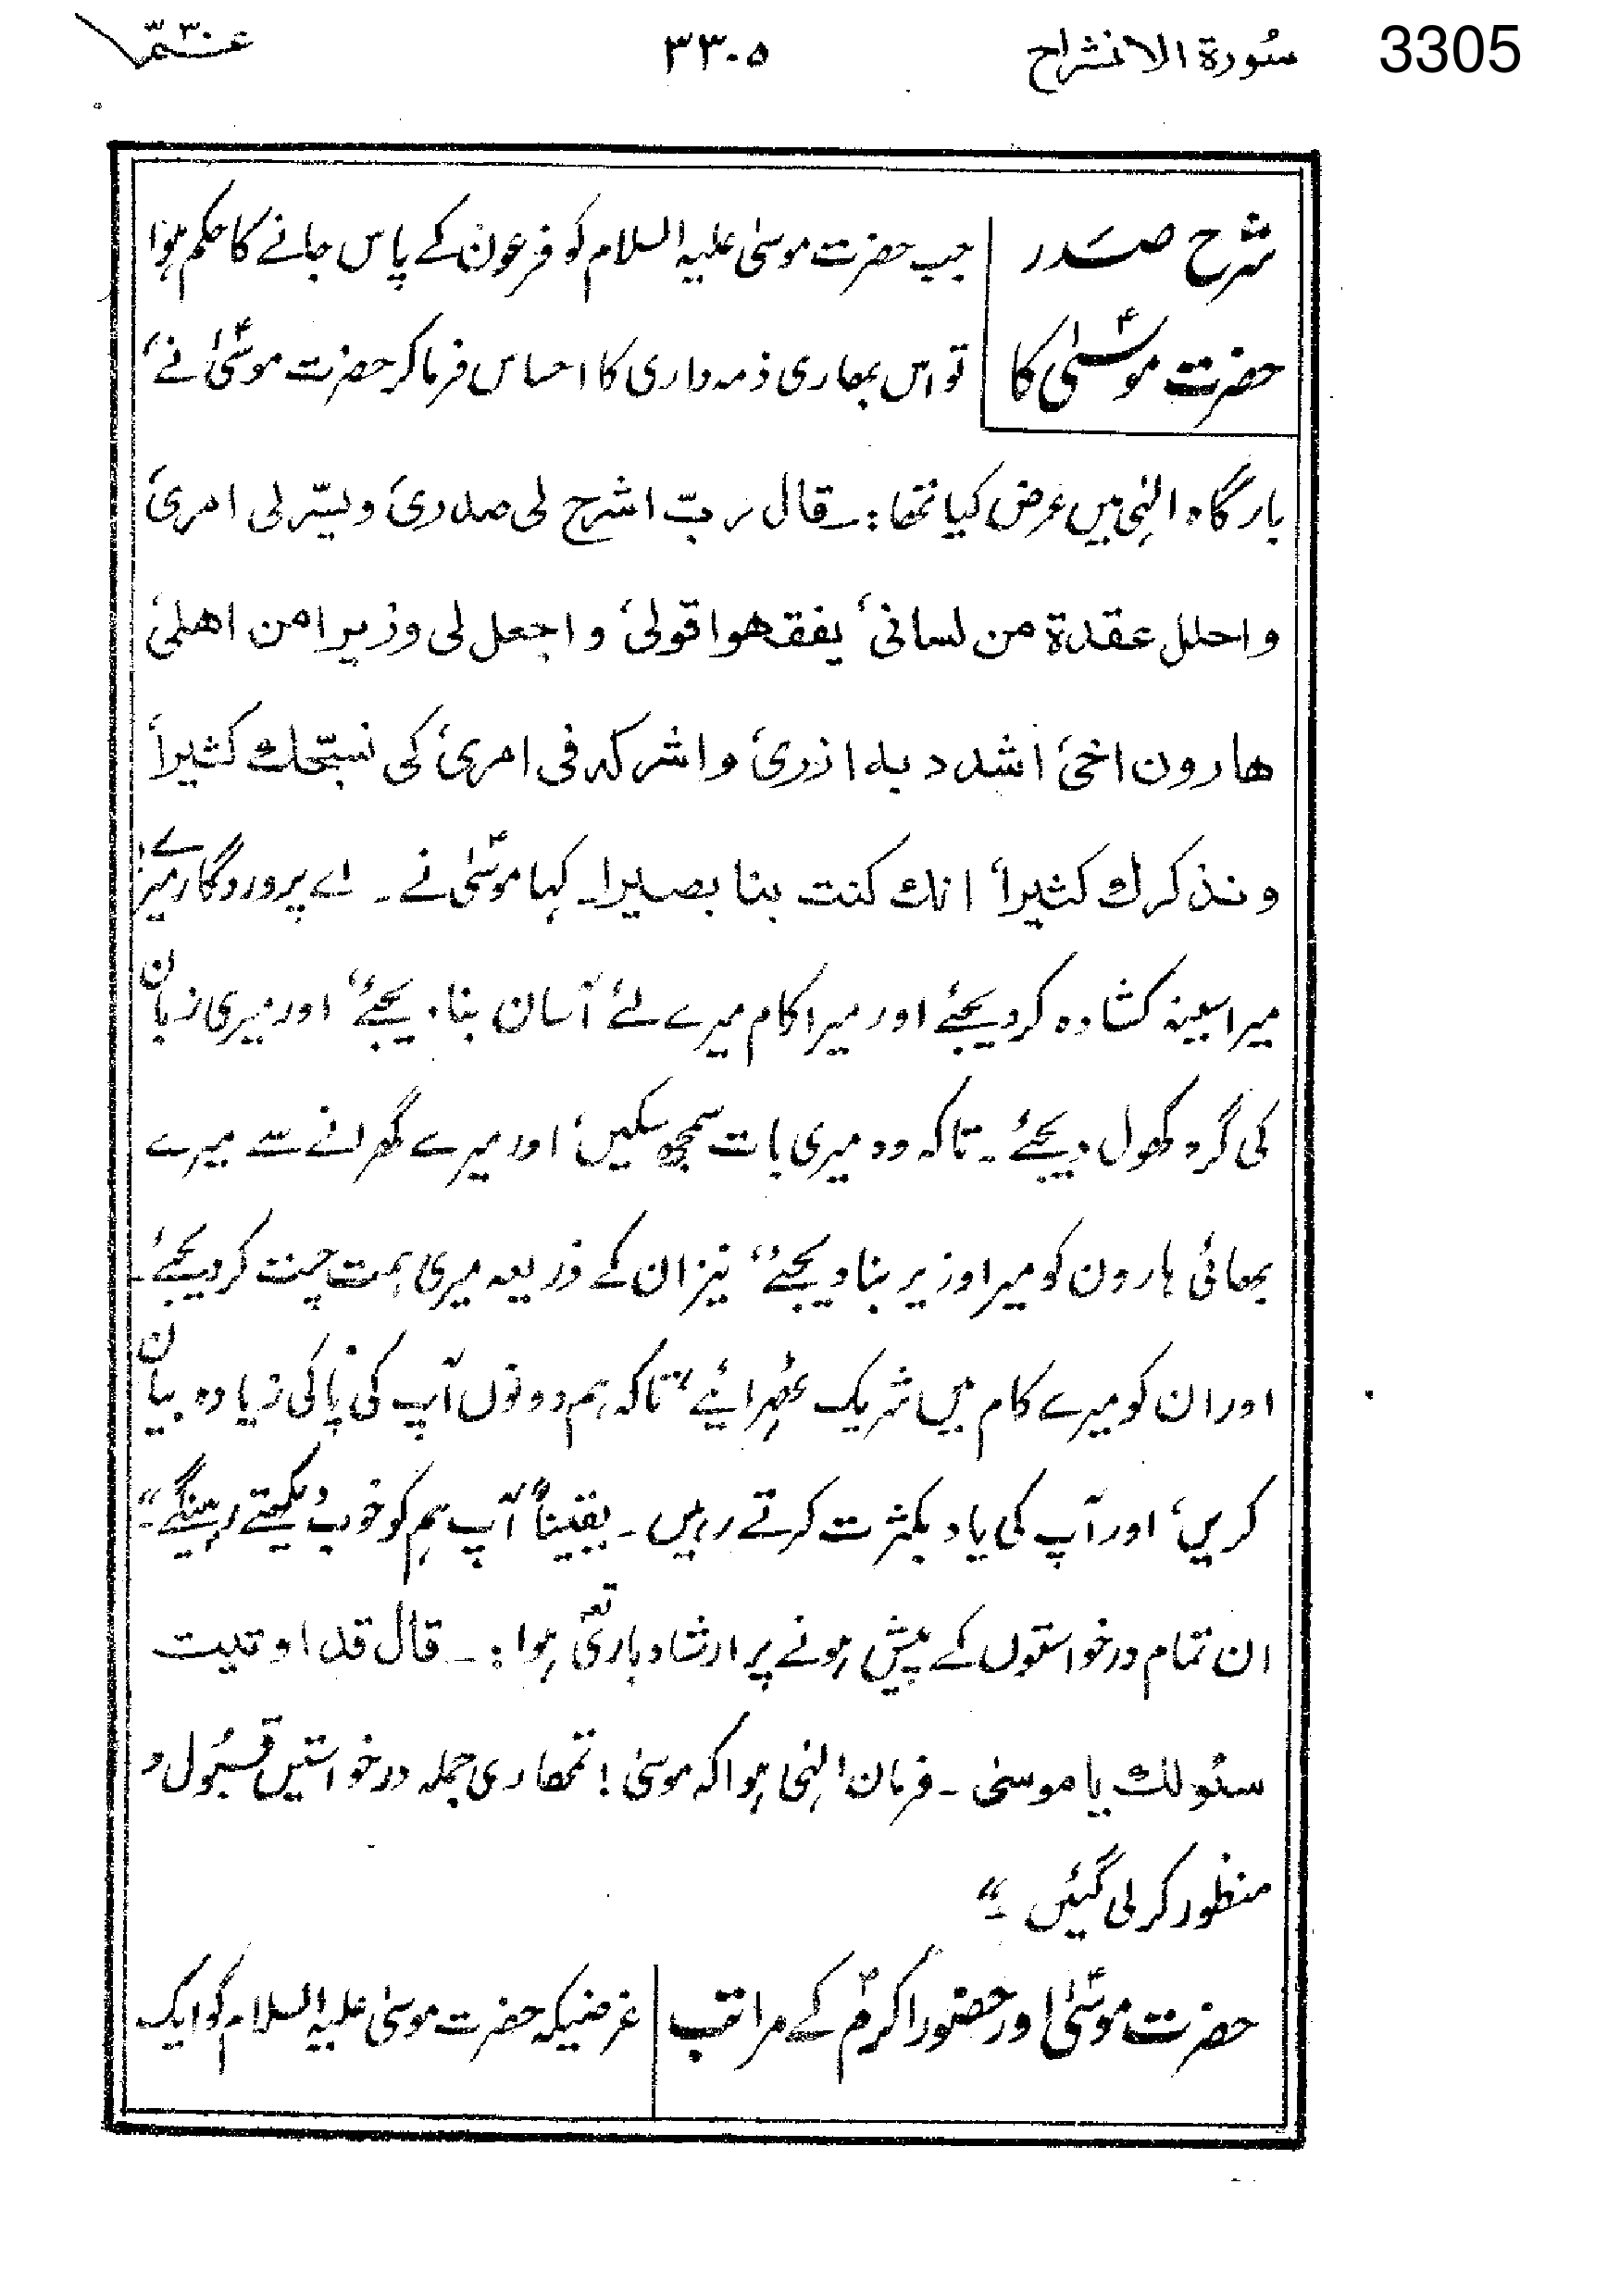 3305 سُورۃ الانشراح ۳۳۰۵ عنتمّ۳
شرح صَدر | جب حضرت موسیٰ علیہ السلام کو فرعون کے پاس جانے کا حکم ہوا
حضرت موسیٰؑ کا | تو اس بھاری ذمہ داری کا احساس فرما کر حضرت موسیٰؑ نے،
بارگاہ الٰہی میں عرض کیا تھا:۔ قال ربّ اشرح لی صدری، ویسّرلی امری،
واحلل عقدۃ من لسانی، یفقھوا قولی، واجعل لی وزیرا من اھلی،
ھارون اخی، اشدد بہ ازری، واشرکہ فی امری، کی نسبّحك کثیرا،
ونذکرك کثیرا، انك کنت بنا بصیرا۔ کہا موسیٰؑ نے۔ اے پروردگار میرے!
میرا سینہ کشادہ کر دیجئے اور میرا کام میرے لئے آسان بنا دیجئے، اور میری زبان
کی گرہ کھول دیجئے۔ تاکہ وہ میری بات سمجھ سکیں، اور میرے گھرانے سے میرے
بھائی ہارون کو میرا وزیر بنا دیجئے، نیز ان کے ذریعہ میری ہمت چست کر دیجئے۔
اور ان کو میرے کام میں شریک ٹھہرائیے، تاکہ ہم دونوں آپ کی پاکی زیادہ بیان
کریں، اور آپ کی یاد بکثرت کرتے رہیں۔ یقیناً آپ ہم کو خوب دیکھتے رہینگے۔"
ان تمام درخواستوں کے پیش ہونے پر ارشاد باریؑ تعہ ہوا:۔ قال قد اوتیت
سئولك یا موسیٰ۔ فرمان الٰہی ہوا کہ موسیٰ! تمھاری جملہ درخواستیں قبُول و
منظور کر لی گئیں۔"
حضرت موسیٰؑ اور حضور اکرمؐ کے مراتب | غرضیکہ حضرت موسیٰ علیہ السلام کو ایک